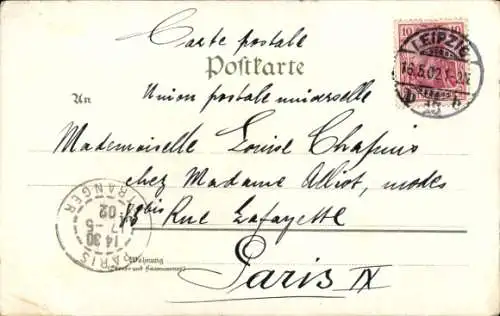 Carte postale
Postkarte
10 10
LEIPZIG
16.5.02. 1-2N
13
An
Union postale universelle
Mademoiselle Louise Chapuis
chez Madame Alliot, modes
bis Rue Lafayette
PARIS ETRANGER
14 30
17 -5
02
Wohnung
Paris IX